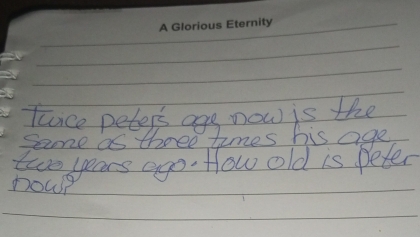 A Glorious Eternity
Twice peter's age now is the
same as three times his age
two years ago. How old is peter
now?